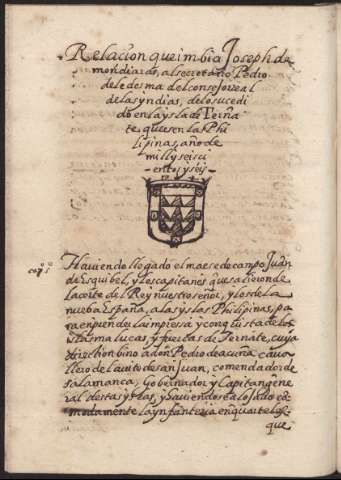 Relacion que imbia Joseph da
mondiaras, al secretario Pedro
de ledesma del consejo real
de las yndias, de lo sucedi
do en la ysla de Terña
te, que es en las Phi
lipinas, año de
mill y seisci
entos y seis
Haviendo llegado el maese de campo Juan
de Esquibel, y los capitanes que salieron de
la corte del Rey nuestro señor, y los de la
nueba España, a las yslas Philipinas, pa
ra enprender la impressa y conquista de las
yslas malucas, y fuerças de Ternate, cuya
direction bino a don Pedro de acuña cava
llero del avito de san Juan, comendador de
salamanca, Gobernador y Capitan gene
ral destas yslas, y haviendose alojado co
modamente la ynfanteria en quarteles
que